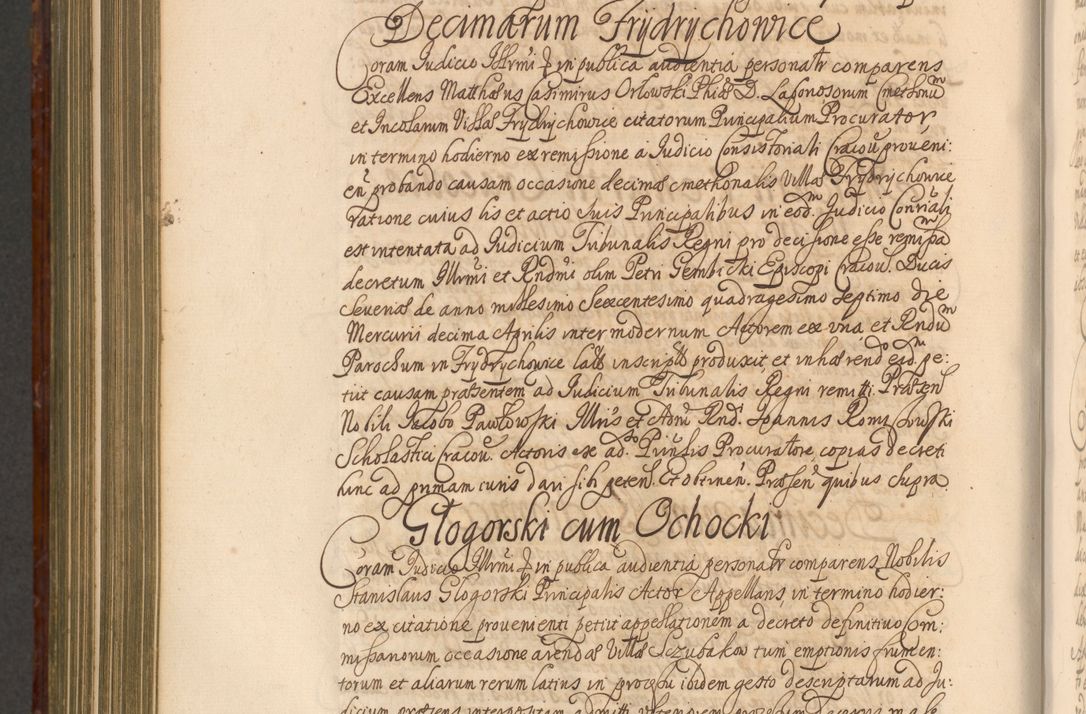 Decimarum Frydrychowice
Coram Judicio Illrmi & in publica audientia personalr comparens
Excellens Matthæus Casimirus Orłowski Phiæ D. Laboriosorum Cmethonũ
et Incolarum Villæ Frydrychowice citatorum Principalium Procurator
in termino hodierno ex remissione a Judicio Consistoriali Cracou proveni:
en probando causam occasione decimæ cmethonalis Villæ Frydrychowice
ratione cuius lis et actio suis Principalibus in eod̃m Judicio Conriali
est intentata ad Judicium Tribunalis Regni pro decisione esse remissã
decretum Illrmi et Rndmi olim Petri Gembicki Episcopi Cracou. Ducis
Severiæ de anno millesimo Sexcentesimo quadragesimo septimo die
Mercurii decima Aprilis inter modernum Actorem ex una et Rndũm
Parochum in Frydrychowice latũ inscriptũ produxit et inhærendo eid̃m pe:
tiit causam præsentem ad Judicium Tribunalis Regni remitti. Præsten
Nobili Jacobo Pawłowski Illris et Adm Rnd. Joannis Romiszowski
Scholastici Cracou. Actoris ex ad.so Prinlis Procuratore, copias decreti
hinc ad primam iuris dari sibi peten. Et obtinen. Præsen. quibus supra
Głogorski cum Ochocki
Coram Judicio Illrmi & in publica audientia personalr comparens Nobilis
Stanislaus Głogorski Principalis Actor Appellans, in termino hodier:
no ex citatione provenienti petiit appellationem a decreto definitivo Com:
missariorum occasione arendæ Villæ Sczubakow tum emptionis frumen:
torum et aliarum rerum latius in processu ibidem gesto descriptarum ad Ju:
dicium præsens interpositam admitti